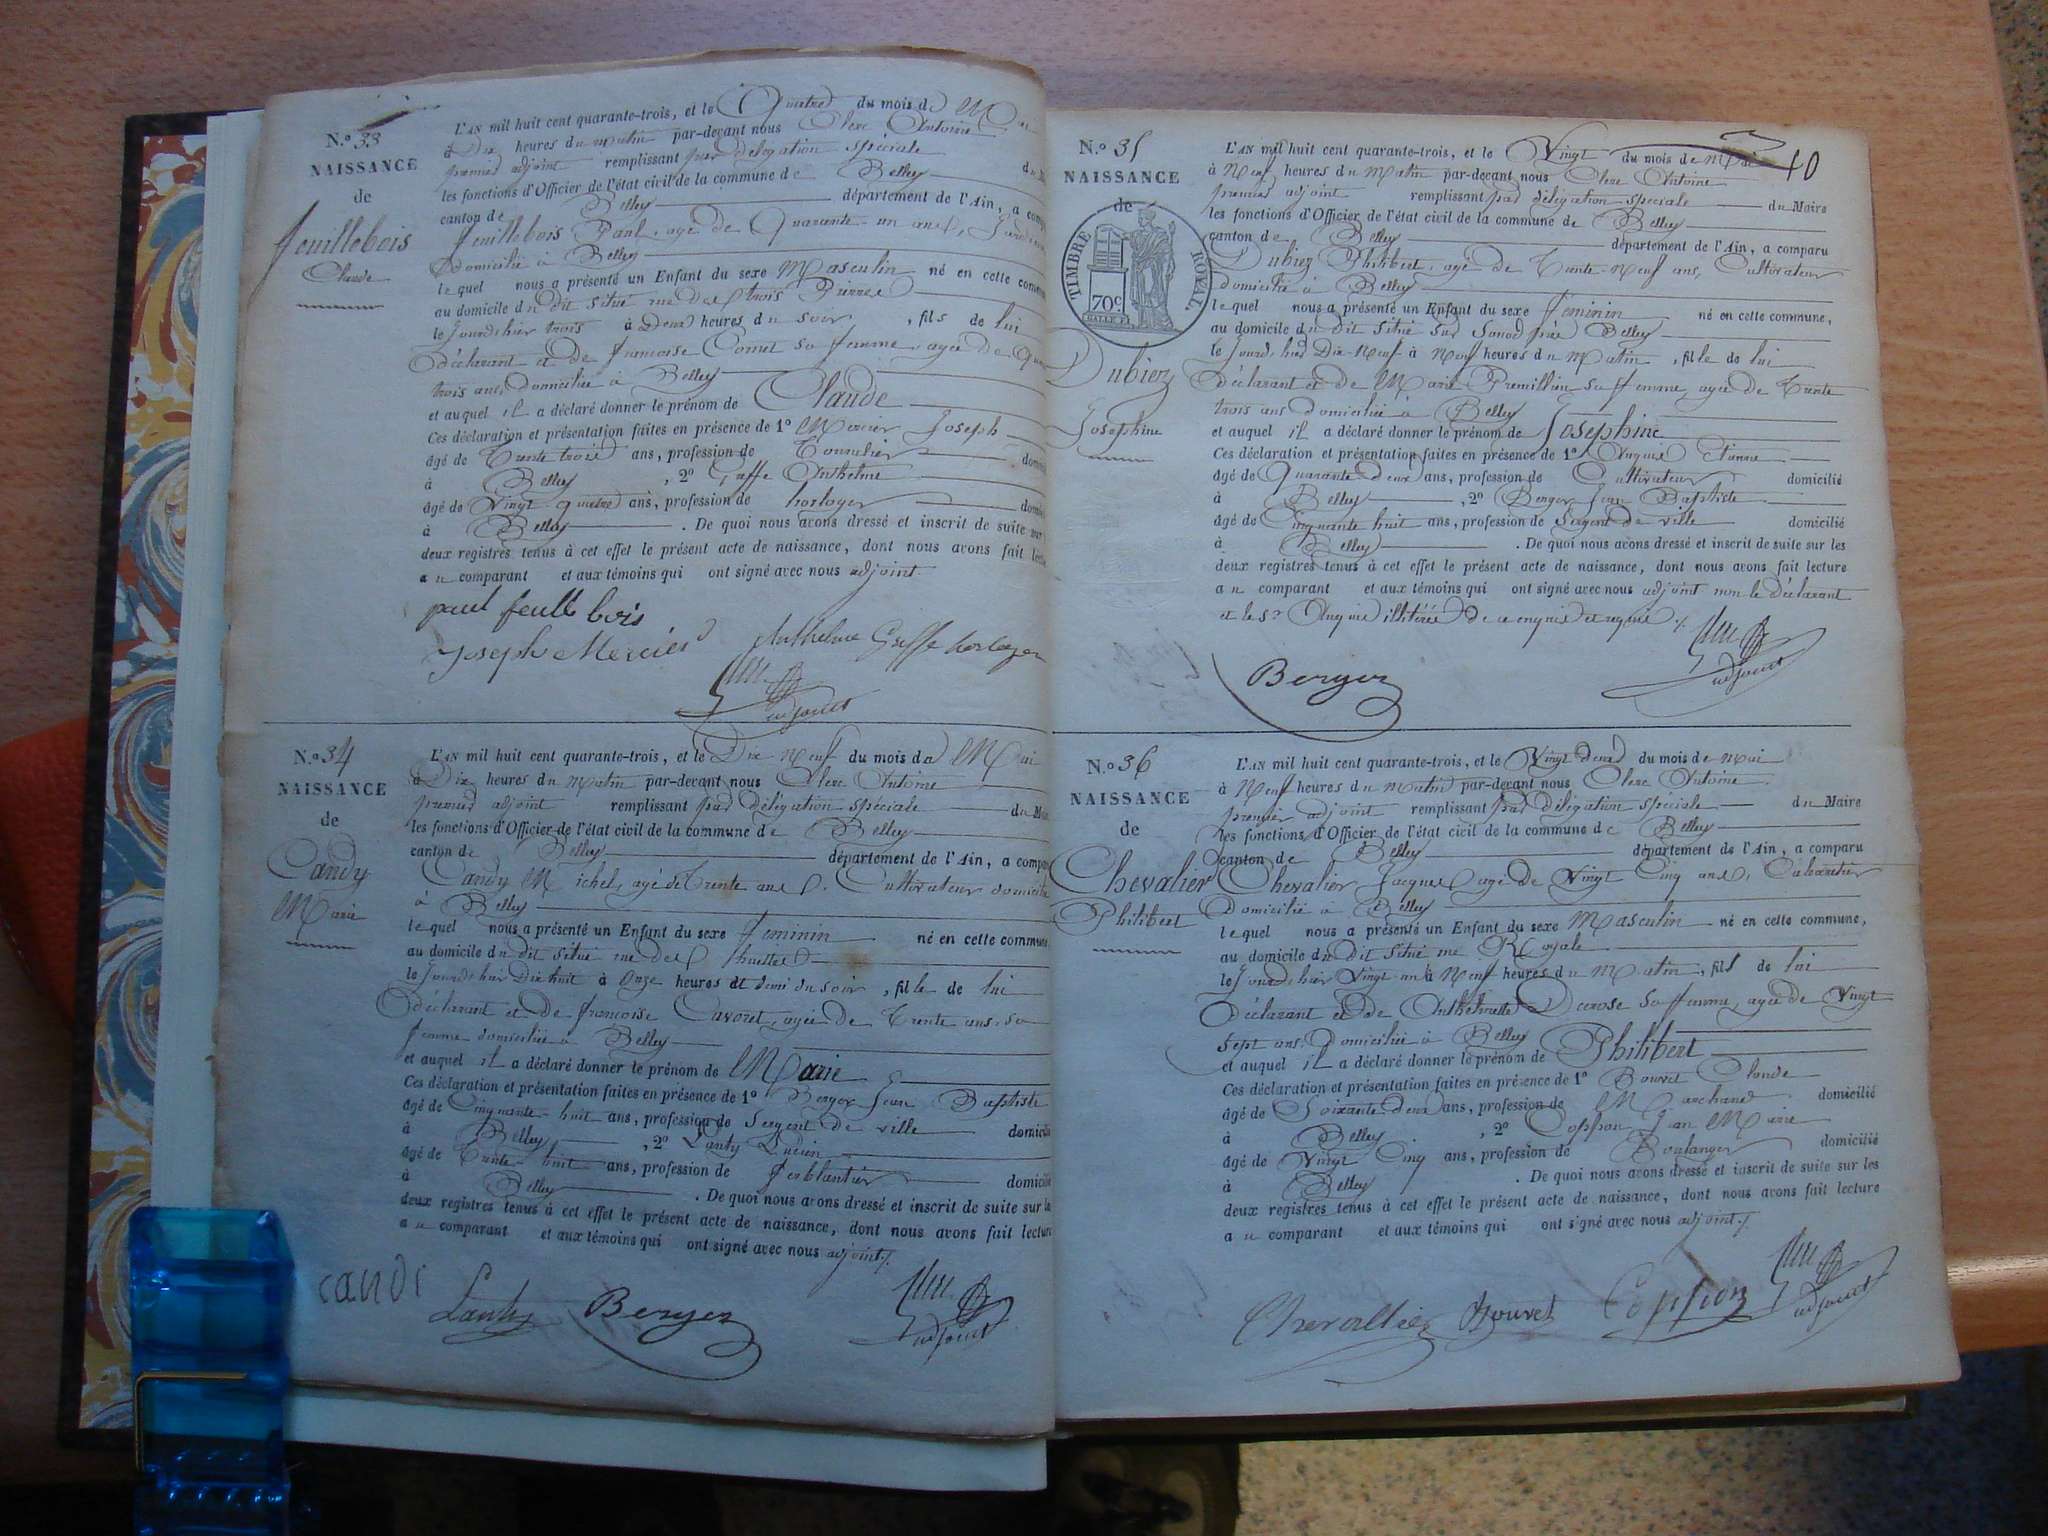 N.o 33
NAISSANCE
de
Feuillebois
Claude
L'AN mil huit cent quarante-trois, et le Quatre du mois de Mai
à Dix heures du matin par-devant nous Clerc Antoine
premier adjoint remplissant par délégation spéciale du
les fonctions d'Officier de l'état civil de la commune de Belley
canton de Belley département de l'Ain, a
Feuillebois Paul, agé de Quarante un ans,
Domicilié à Belley
lequel nous a présenté un Enfant du sexe Masculin né en cette
au domicile du dit situé rue des trois Pierres
le Jourd'hier trois à Deux heures du soir, fils de lui
Déclarant et de françoise Comet sa femme, agée de
trois ans, domiciliée à Belley
et auquel il a déclaré donner le prénom de Claude
Ces déclaration et présentation faites en présence de 1o Mercier Joseph
âgé de Trente trois ans, profession de Tonnelier
à Belley, 2o Greffe Anthelme
âgé de Vingt quatre ans, profession de horloger
à Belley. De quoi nous avons dressé et inscrit de suite sur
deux registres tenus à cet effet le présent acte de naissance, dont nous avons fait
au comparant et aux témoins qui ont signé avec nous adjoint.
paul feullbois
Joseph Mercier Anthelme Greffe horloger
Clerc
adjoint
N.o 34
NAISSANCE
de
Candy
Marie
L'AN mil huit cent quarante-trois, et le Dix neuf du mois de Mai
à Dix heures du Matin par-devant nous Clerc Antoine
premier adjoint remplissant par délégation spéciale du
les fonctions d'Officier de l'état civil de la commune de Belley
canton de Belley département de l'Ain, a
Candy Michel, agé de Trente ans, Cultivateur domicilié
à Belley
lequel nous a présenté un Enfant du sexe feminin né en cette commune
au domicile du dit situé rue des
le Jourd'hier Dix huit à Onze heures et demi du soir, fille de lui
Déclarant et de françoise Cavoret, agée de Trente ans, sa
femme domiciliée à Belley
et auquel il a déclaré donner le prénom de Marie
Ces déclaration et présentation faites en présence de 1o Berger Jean Baptiste
âgé de Cinquante huit ans, profession de Sergent de ville domicilié
à Belley, 2o Lanty Lucien
âgé de Trente huit ans, profession de ferblantier domicilié
à Belley. De quoi nous avons dressé et inscrit de suite sur
deux registres tenus à cet effet le présent acte de naissance, dont nous avons fait lecture
au comparant et aux témoins qui ont signé avec nous adjoint
candi Lanty Berger Clerc
adjoint
40
N.o 35
NAISSANCE
de
TIMBRE ROYAL
70c
Dubiez
Josephine
L'AN mil huit cent quarante-trois, et le Vingt du mois de Mai
à Neuf heures du Matin par-devant nous Clerc Antoine
premier adjoint remplissant par délégation spéciale du Maire
les fonctions d'Officier de l'état civil de la commune de Belley
canton de Belley département de l'Ain, a comparu
Dubiez Philibert, agé de Trente-Neuf ans, Cultivateur
domicilié à Belley
lequel nous a présenté un Enfant du sexe feminin né en cette commune,
au domicile du dit situé sur près Belley
le Jourd'hier Dix-Neuf à Neuf heures du Matin, fille de lui
Déclarant et de Marie Premillieu sa femme, agée de Trente
trois ans domiciliée à Belley
et auquel il a déclaré donner le prénom de Josephine
Ces déclaration et présentation faites en présence de 1o Etienne
âgé de Quarante deux ans, profession de Cultivateur domicilié
à Belley, 2o Berger Jean Baptiste
âgé de Cinquante huit ans, profession de Sergent de ville domicilié
à Belley. De quoi nous avons dressé et inscrit de suite sur les
deux registres tenus à cet effet le présent acte de naissance, dont nous avons fait lecture
au comparant et aux témoins qui ont signé avec nous adjoint non le déclarant
et le Sr illitérés de ce enquis et requis
Berger Clerc
adjoint
N.o 36
NAISSANCE
de
Chevalier
Philibert
L'AN mil huit cent quarante-trois, et le Vingt deux du mois de Mai
à Neuf heures du Matin par-devant nous Clerc Antoine
premier adjoint remplissant par délégation spéciale du Maire
les fonctions d'Officier de l'état civil de la commune de Belley
canton de Belley département de l'Ain, a comparu
Chevalier Jacques, agé de Vingt Cinq ans, Cabaretier
Domicilié à Belley
lequel nous a présenté un Enfant du sexe Masculin né en cette commune,
au domicile du dit situé rue Royale
le Jourd'hier Vingt-un à Neuf heures du Matin, fils de lui
Déclarant et de Anthelmette Derose sa femme, agée de Vingt
Sept ans, Domiciliée à Belley
et auquel il a déclaré donner le prénom de Philibert
Ces déclaration et présentation faites en présence de 1o Bouvet Claude
âgé de Soixante deux ans, profession de Marchand domicilié
à Belley, 2o Coppon Jean Marie
âgé de Vingt Cinq ans, profession de Boulanger domicilié
à Belley. De quoi nous avons dressé et inscrit de suite sur les
deux registres tenus à cet effet le présent acte de naissance, dont nous avons fait lecture
au comparant et aux témoins qui ont signé avec nous adjoint
Chevallier Bouvet Coppon Clerc
adjoint